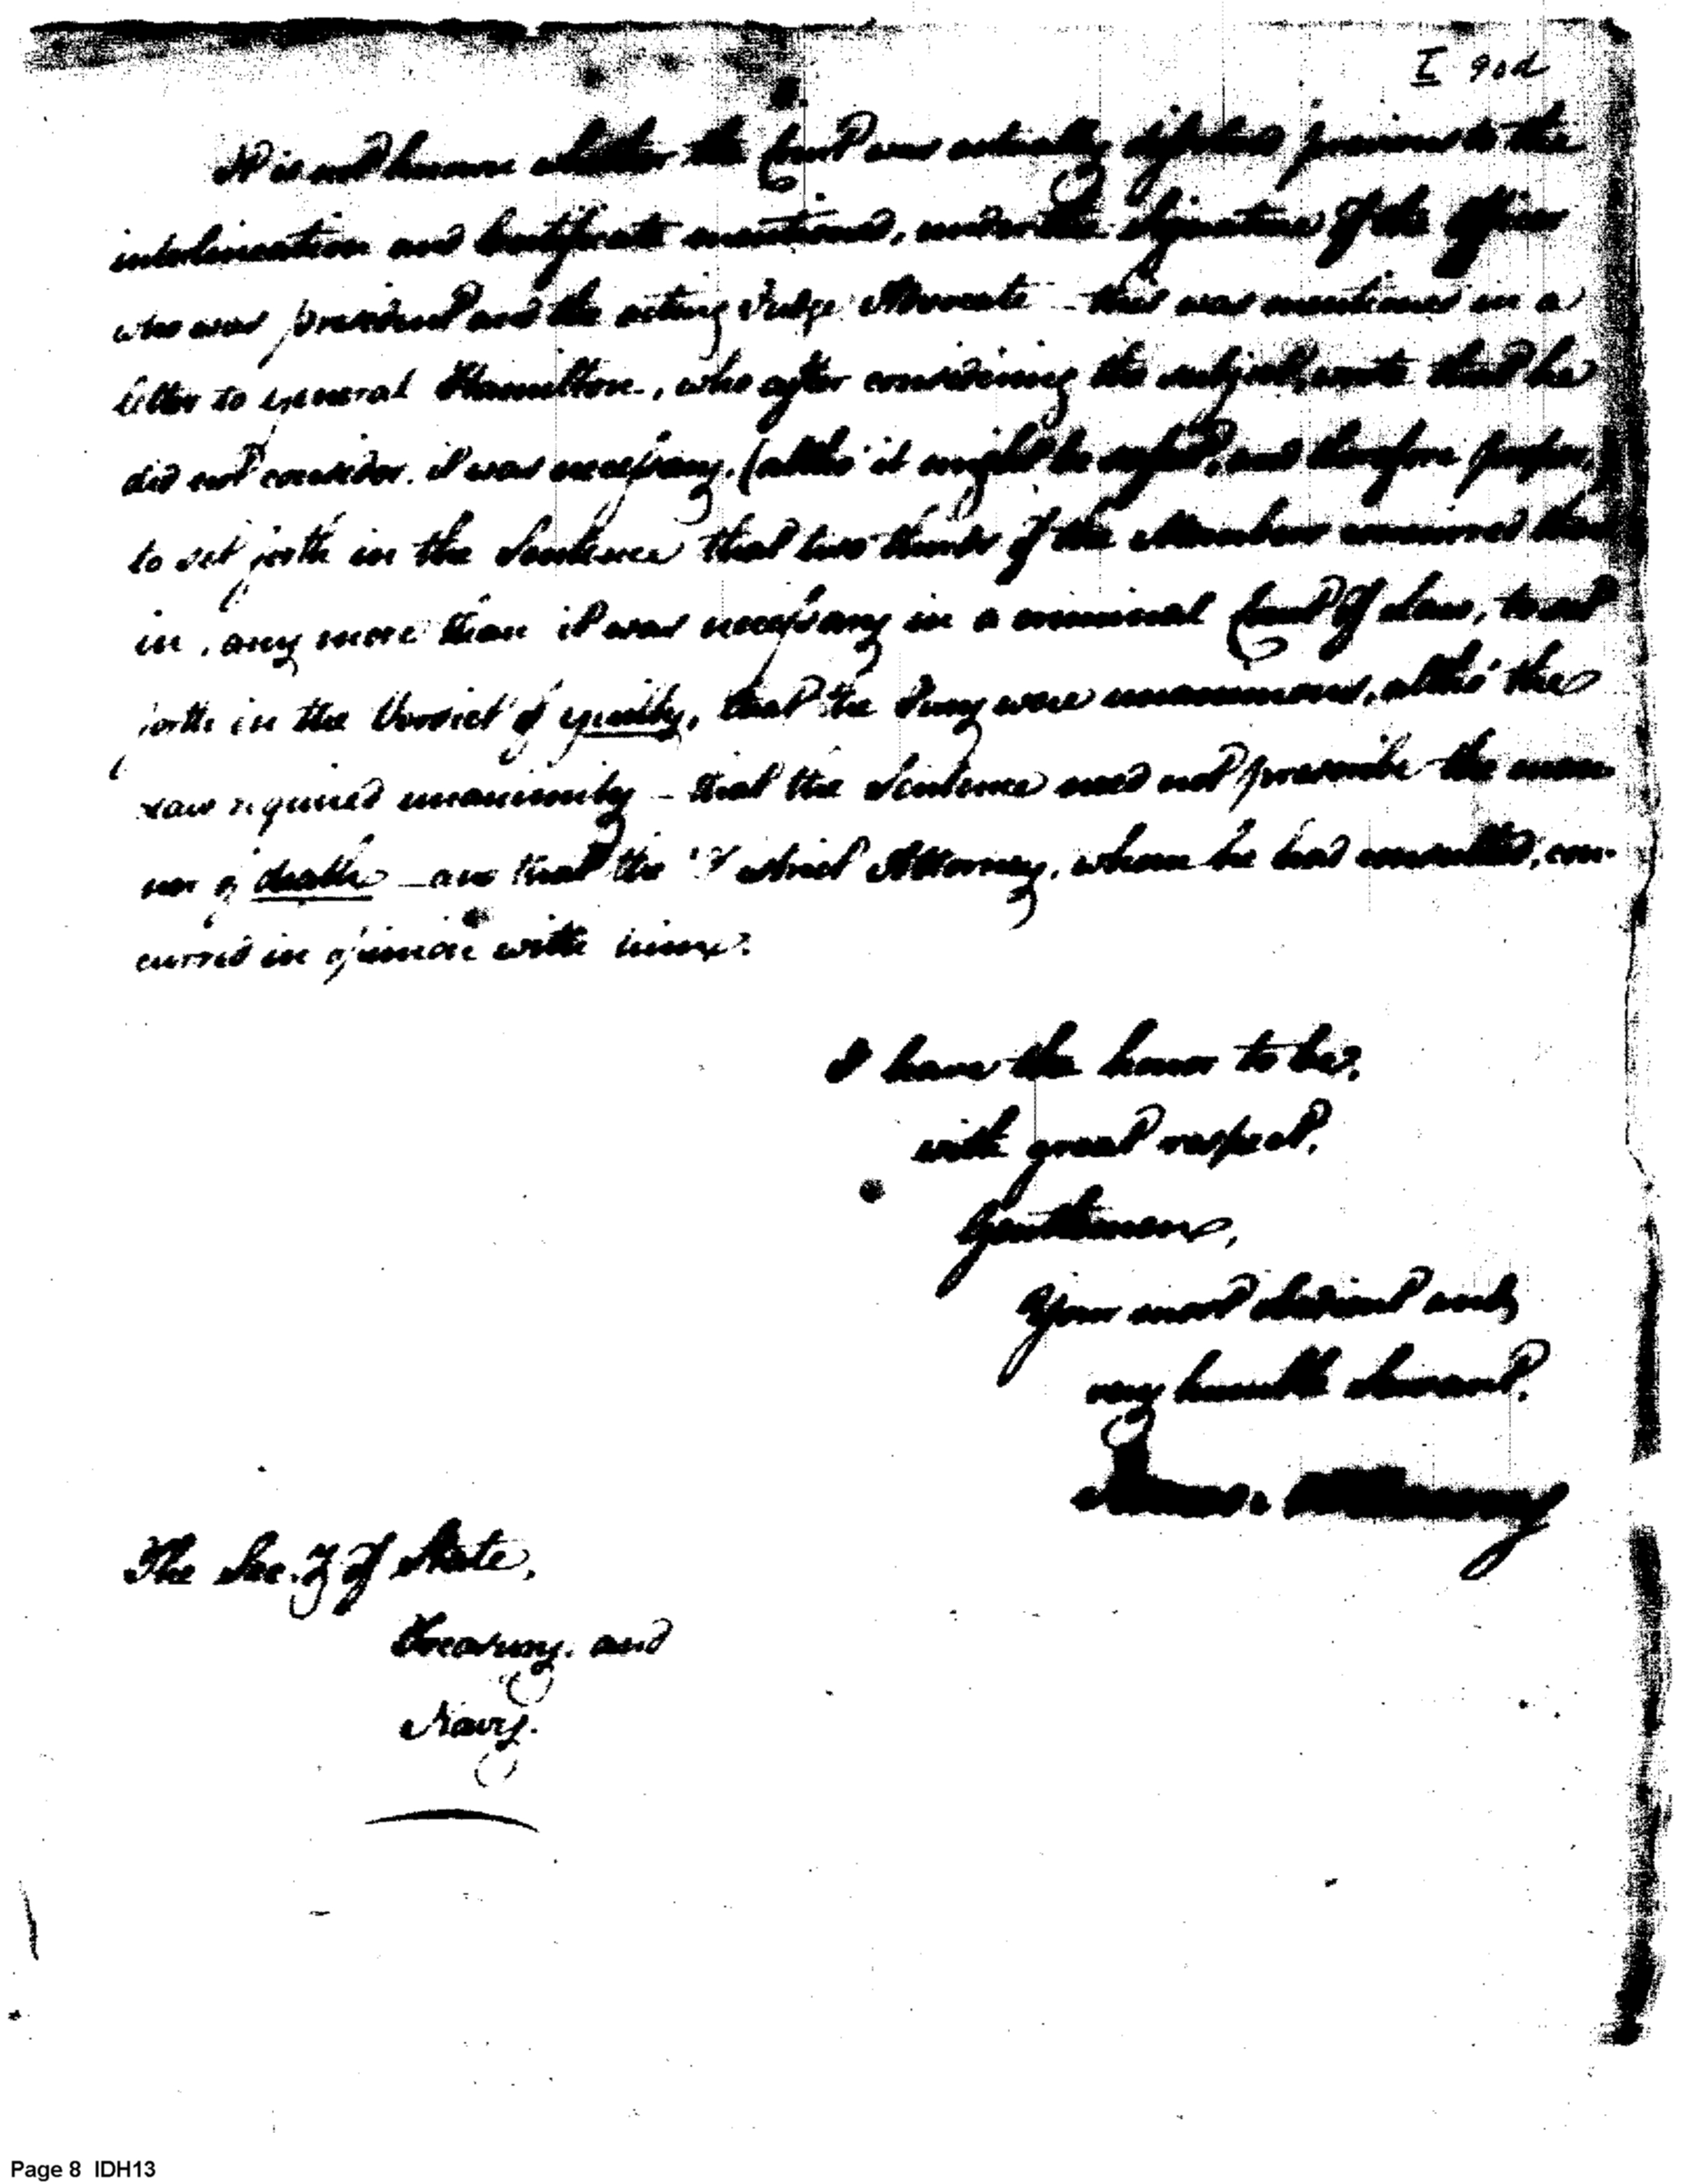 I 90d
It is not known whether the Court was actually dissolved previous to the
interlineation and Certificate mentioned, under the Signature of the Officer
who was president and the acting Judge Advocate – this was mentioned in a
letter to general Hamilton, who after considering the subject, wrote that he
did not consider it was necessary, (altho' it might be useful, and therefore proper,)
to set forth in the Sentence that two thirds of the Members concurred there
in, any more than it was necessary in a criminal Court of Law, to set
forth in the Verdict of guilty, that the Jury were unanimous, altho' the
Law required unanimity – that the Sentence need not prescribe the man-
ner of death – and that the District Attorney, whom he had consulted, con-
curred in opinion with him.
I have the honor to be,
with great respect,
Gentlemen,
Your most obedient and,
very humble Servant,
James McHenry
The Sec.y of State,
Treasury, and
Navy.
Page 8 IDH13